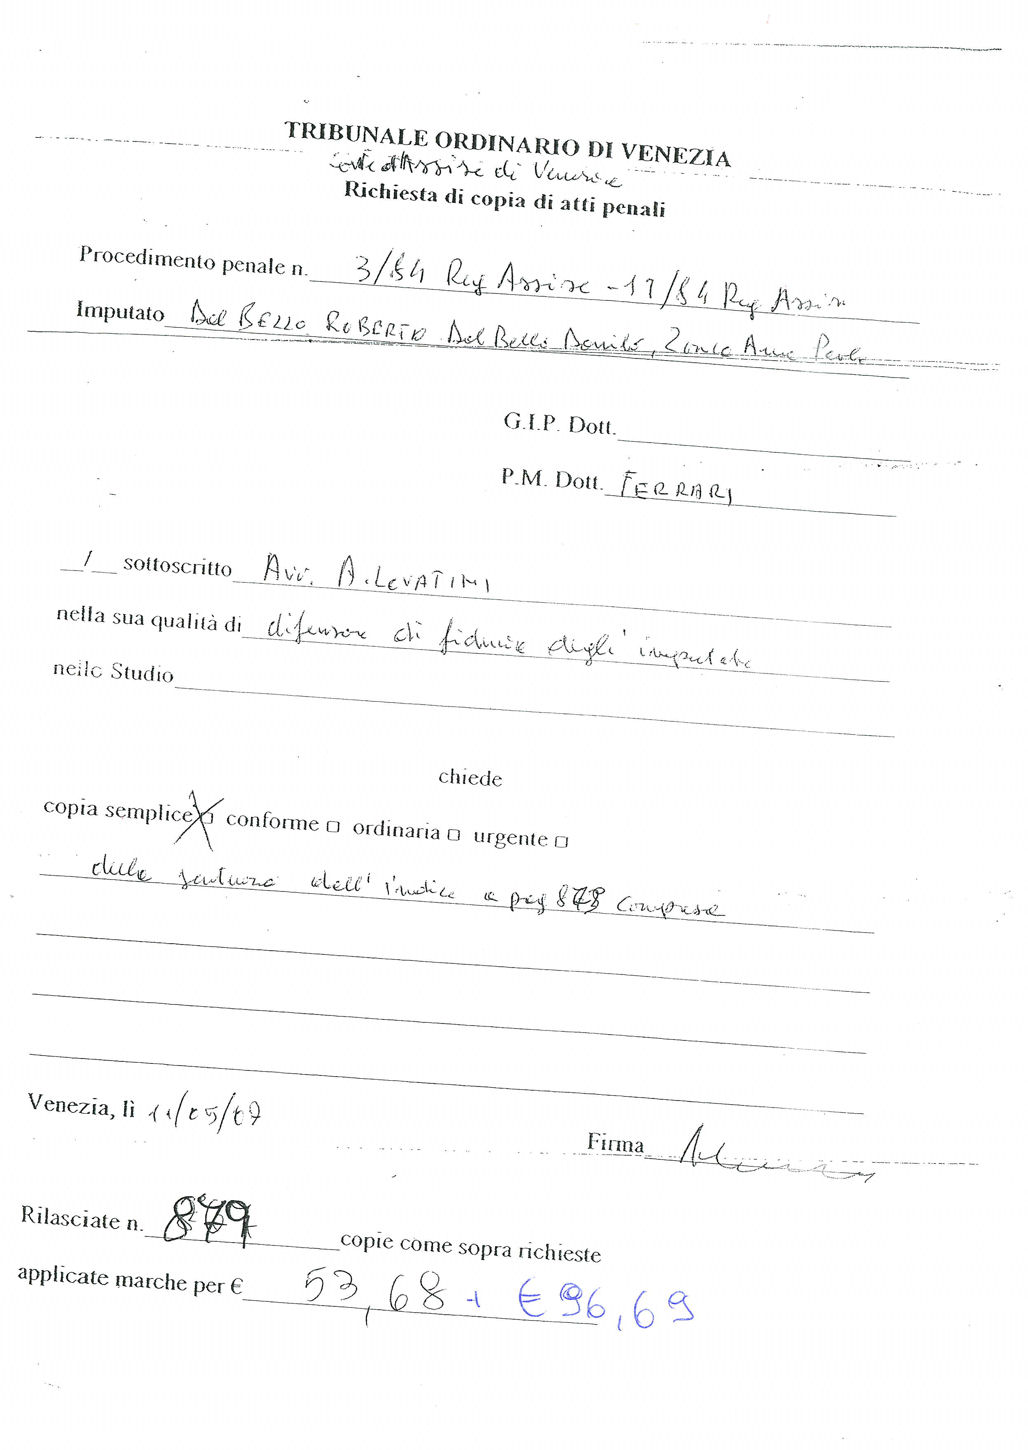 TRIBUNALE ORDINARIO DI VENEZIA
Corte d'Assise di Venezia
Richiesta di copia di atti penali
Procedimento penale n. 3/84 Reg Assise - 17/84 Reg Assise
Imputato Del BELLO ROBERTO Del Bello Danilo, Anna Paola
G.I.P. Dott.
P.M. Dott. FERRARI
_/_ sottoscritto Avv. A. LOVATINI
nella sua qualità di difensore di fiducia degli imputati
nello Studio
chiede
copia semplice X conforme □ ordinaria □ urgente □
della sentenza dell'indice a pag 878 compresa
Venezia, lì 11/05/07
Firma
Rilasciate n. 879 copie come sopra richieste
applicate marche per € 53,68 + € 96,69